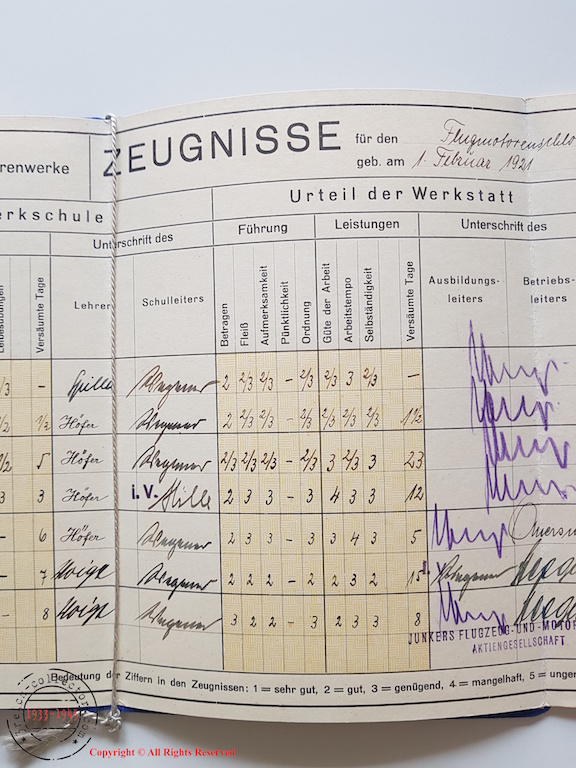 ZEUGNISSE
für den
geb. am 1. Februar 1921
renwerke
Urteil der Werkstatt
erkschule
Unterschrift des
Führung
Leistungen
Unterschrift des
Leibesübungen
Versäumte Tage
Lehrers
Schulleiters
Betragen
Fleiß
Aufmerksamkeit
Pünktlichkeit
Ordnung
Güte der Arbeit
Arbeitstempo
Selbständigkeit
Versäumte Tage
Ausbildungs-
leiters
Betriebs-
leiters
/3 – Hille Wegener 2 2/3 2/3 – 2/3 2/3 3 2/3 –
/2 1/2 Höfer Wegener 2 2/3 2/3 – 2/3 2/3 2/3 2/3 1 1/2
/2 5 Höfer Wegener 2/3 2/3 2/3 – 2/3 3 2/3 3 23
3 3 Höfer i. V. Hille 2 3 3 – 3 4 3 3 12
– 6 Höfer Wegener 2 3 3 – 3 3 4 3 5
– 7 Voigt Wegener 2 2 2 – 2 2 3 2 15 Wegener
– 8 Voigt Wegener 3 2 2 – 3 2 3 3 8
JUNKERS FLUGZEUG-UND-MOTOR
AKTIENGESELLSCHAFT
Bedeutung der Ziffern in den Zeugnissen: 1 = sehr gut, 2 = gut, 3 = genügend, 4 = mangelhaft, 5 = unge
1933-1945
Copyright © All Rights Reserved